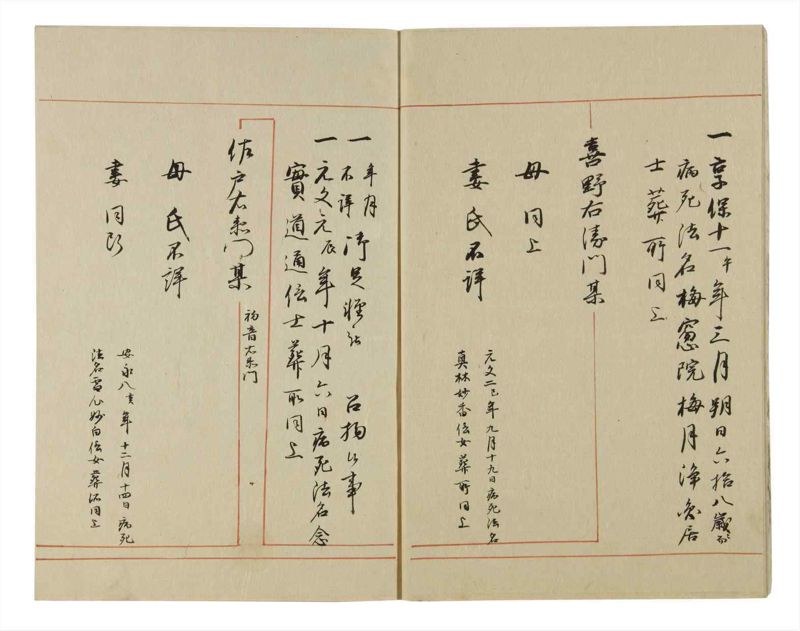 一享保十一午年三月朔日六拾八歳ニ而
病死法名梅窓院梅月浄烝居
士葬所同上
喜野右衛門某
母同上
妻氏不詳
元文二巳年九月十九日病死法名
真林妙香信女葬所同上
一年月不詳御足軽
一元文元辰年十月六日病死法名念
實道通信士葬所同上
佐戸右衛門某
初音右衛門
母氏不詳
妻同断
安永八亥年十二月十四日病死
法名雪心妙白信女葬所同上